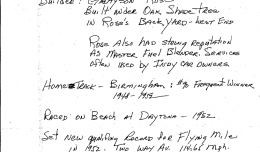 Builder: Grayson "Rose"
Built under Oak Shade Tree
in Rose's Back Yard - West End
Rose Also Had Strong Reputation
as Master Fuel Blender Services
often used by Indy car owners
Home Track - Birmingham: #90 Frequent Winner
Raced on Beach at Daytona - 1952
Set New Qualifying Record for Flying Mile
in 1952. Two Way Av. 114.61 mph.